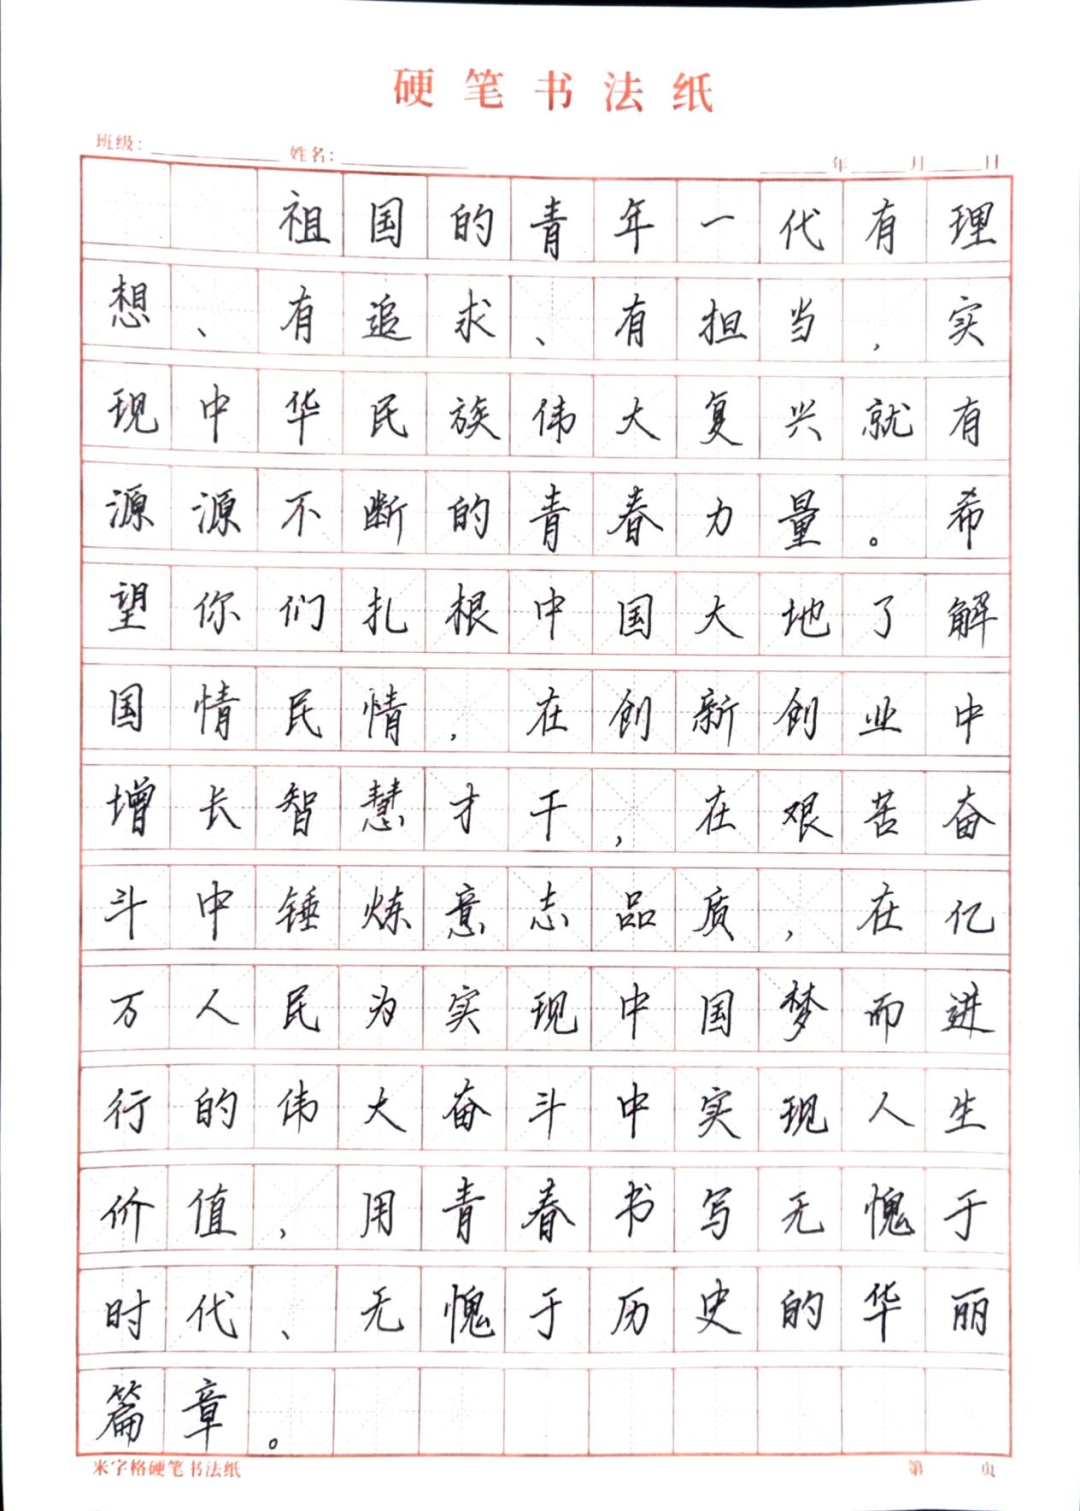 硬笔书法纸
班级： 姓名： 年 月 日
祖国的青年一代有理
想、有追求、有担当，实
现中华民族伟大复兴就有
源源不断的青春力量。希
望你们扎根中国大地了解
国情民情，在创新创业中
增长智慧才干，在艰苦奋
斗中锤炼意志品质，在亿
万人民为实现中国梦而进
行的伟大奋斗中实现人生
价值，用青春书写无愧于
时代、无愧于历史的华丽
篇章。
米字格硬笔书法纸 第 页